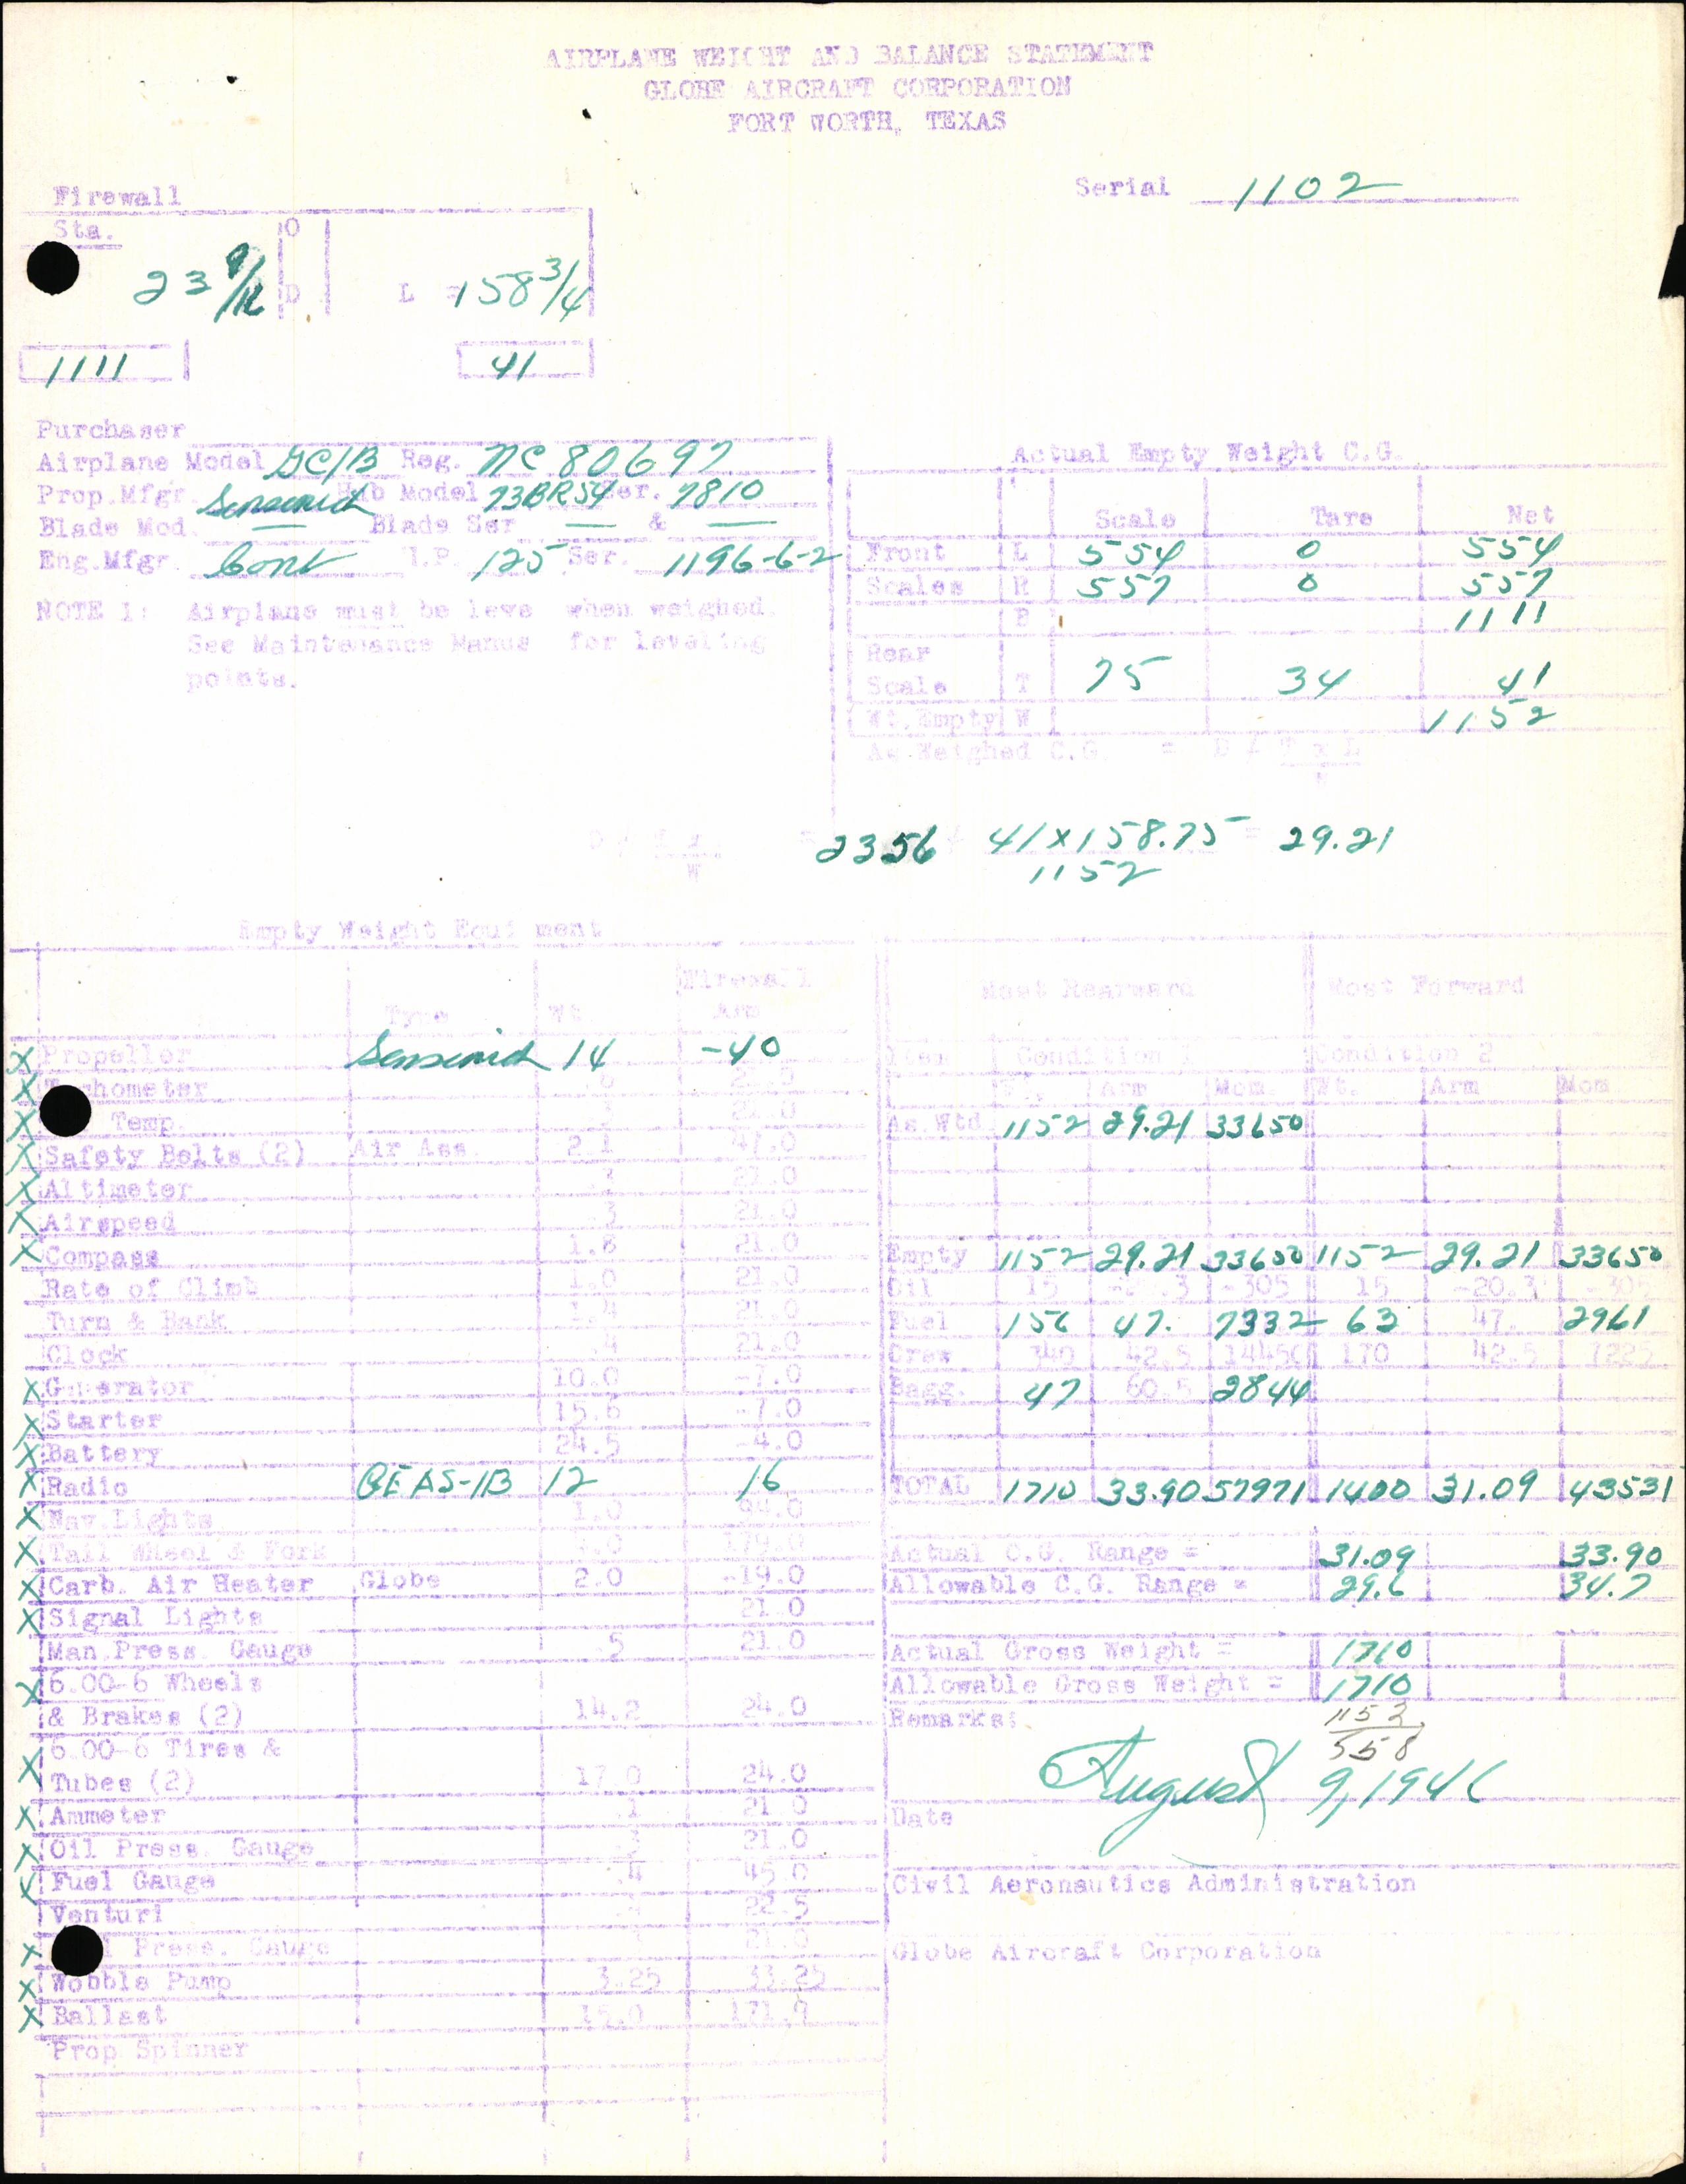 AIRPLANE WEIGHT AND BALANCE STATEMENT
GLOBE AIRCRAFT CORPORATION
FORT WORTH, TEXAS
Serial 1102
Firewall
Sta. O
23 9/16 D L = 158 3/4
1111 41
Purchaser
Airplane Model GC1B Reg. NC 80697
Prop.Mfgr. Sensenich Hub Model 73BR54 Ser. 7810
Blade Mod. — Blade Ser — & —
Eng.Mfgr. Cont H.P. 125 Ser. 1196-6-2
NOTE 1: Airplane must be leve when weighed.
See Maintenance Manua for leveling
points.
Actual Empty Weight C.G.
Scale Tare Net
Front L 554 0 554
Scales R 557 0 557
1111
Rear
Scale T 75 34 41
Wt.Empty W 1152
As Weighed C.G. = D / T x L
W
2356 41 x 158.75 = 29.21
1152
Empty Weight Equi ment
Type Wt. Firewall
Arm
Most Rearward Most Forward
X Propeller Sensenich 14 -40
Item Condition Condition 2
X Tachometer
Wt. Arm Mom. Wt. Arm Mom
X Temp.
As Wtd 1152 29.21 33650
X Safety Belts (2) Air Ass. 2.1
X Altimeter 21.0
X Airspeed .3 21.0
X Compass 1.8 21.0
Empty 1152 29.21 33650 1152 29.21 33650
Rate of Climb 1.0 21.0
Oil 15 -305 15 -20.3 -305
Turn & Bank 21.0
Fuel 156 47. 7332 63 47. 2961
Clock .4 21.0
Crew 340 42.5 14450 170 42.5 7225
X Generator 10.0 -7.0
Bagg. 47 60.5 2844
X Starter 15.6 -7.0
X Battery 24.5 -4.0
X Radio GE AS-1B 12 16
TOTAL 1710 33.90 57971 1400 31.09 43531
X Nav.Lights 1.0 94.0
X Tail Wheel & Fork 179.0
Actual C.G. Range = 31.09 33.90
X Carb. Air Heater Globe 2.0 -19.0
Allowable C.G. Range = 29.6 34.7
X Signal Lights 21.0
Man.Press. Gauge .5 21.0
Actual Gross Weight = 1710
X 6.00-6 Wheels
Allowable Gross Weight = 1710
& Brakes (2) 14.2 24.0
Remarks: 1152
558
X 6.00-6 Tires &
Tubes (2) 17.0 24.0
August 9, 1946
Date
X Ammeter .1 21.0
X Oil Press. Gauge .3 21.0
X Fuel Gauge .4 45.0
Civil Aeronautics Administration
Venturi 22.5
X Press. Gauge 21.0
Globe Aircraft Corporation
X Wobble Pump 3.25 33.25
X Ballast 15.0 171.9
Prop Spinner